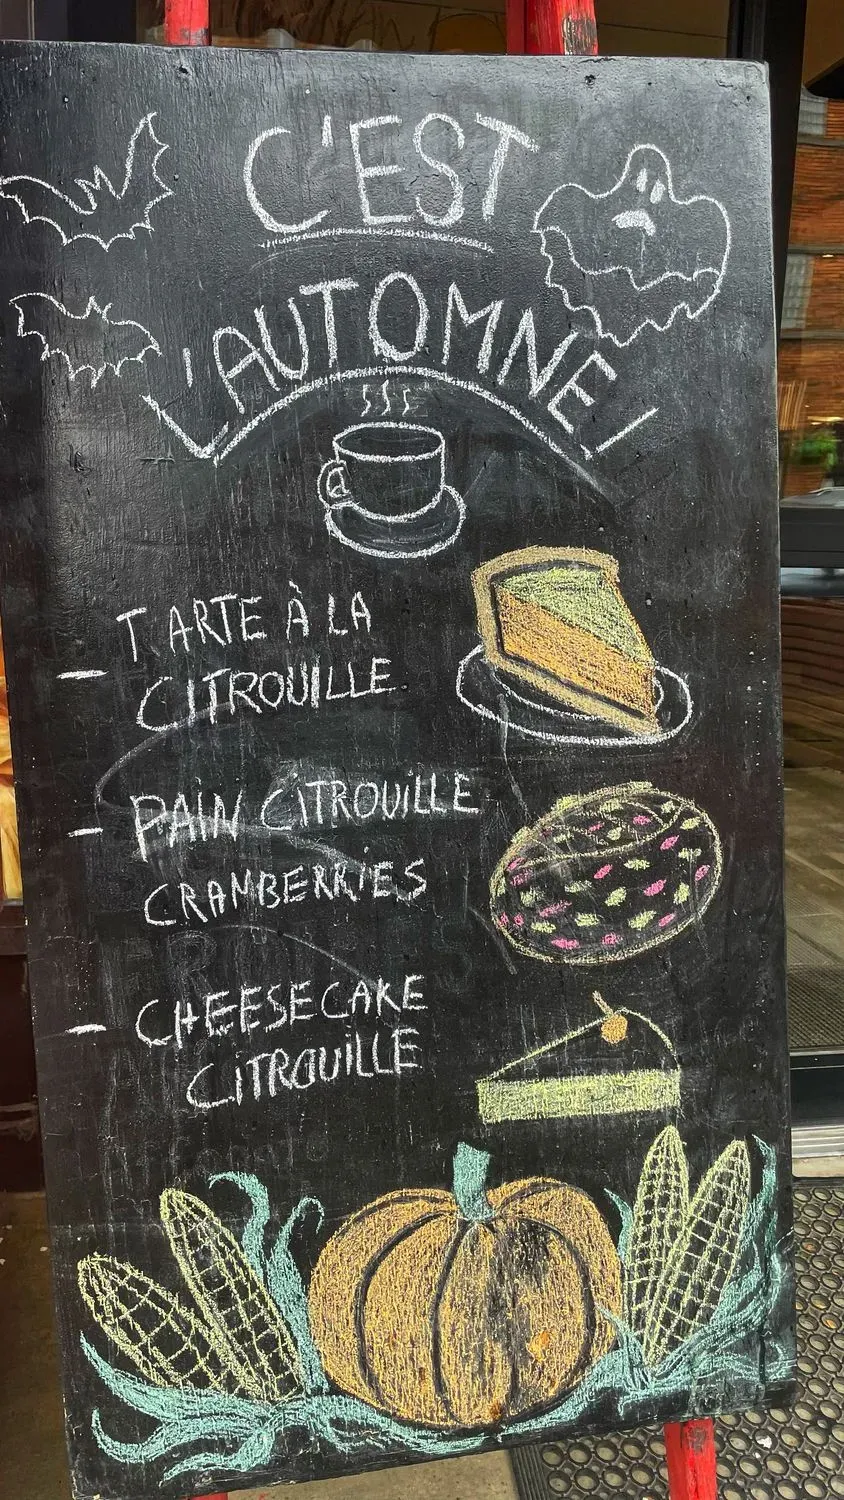 C'EST
L'AUTOMNE!
TARTE À LA
- CITROUILLE
- PAIN CITROUILLE
CRANBERRIES
- CHEESECAKE
CITROUILLE